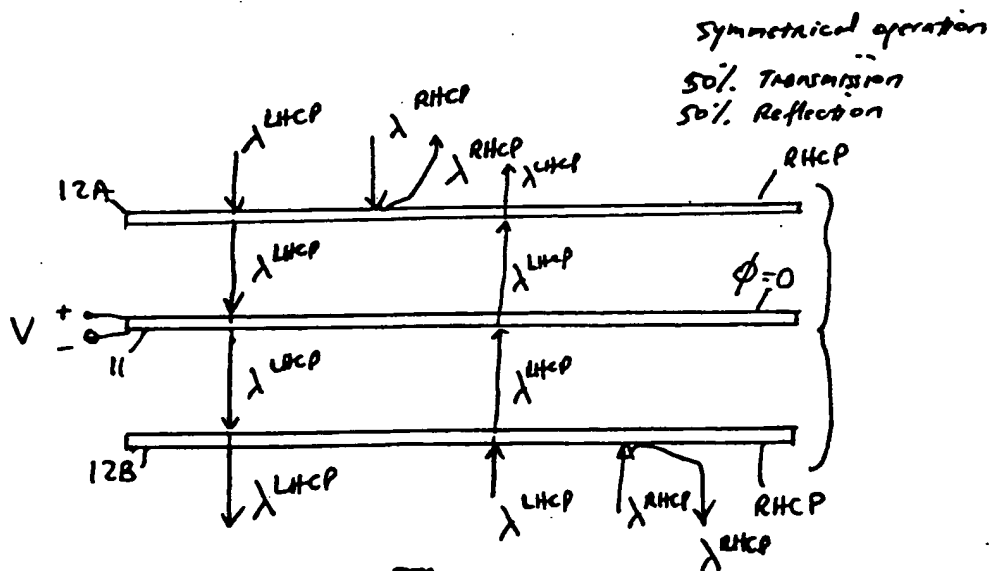 Symmetrical operation
50% Transmission
50% Reflection
λ^LHCP λ^RHCP λ^RHCP λ^LHCP RHCP
12A
λ^LHCP λ^LHCP φ=0
V + −
11
λ^LHCP λ^LHCP
12B
λ^LHCP λ^LHCP λ^RHCP RHCP
λ^RHCP